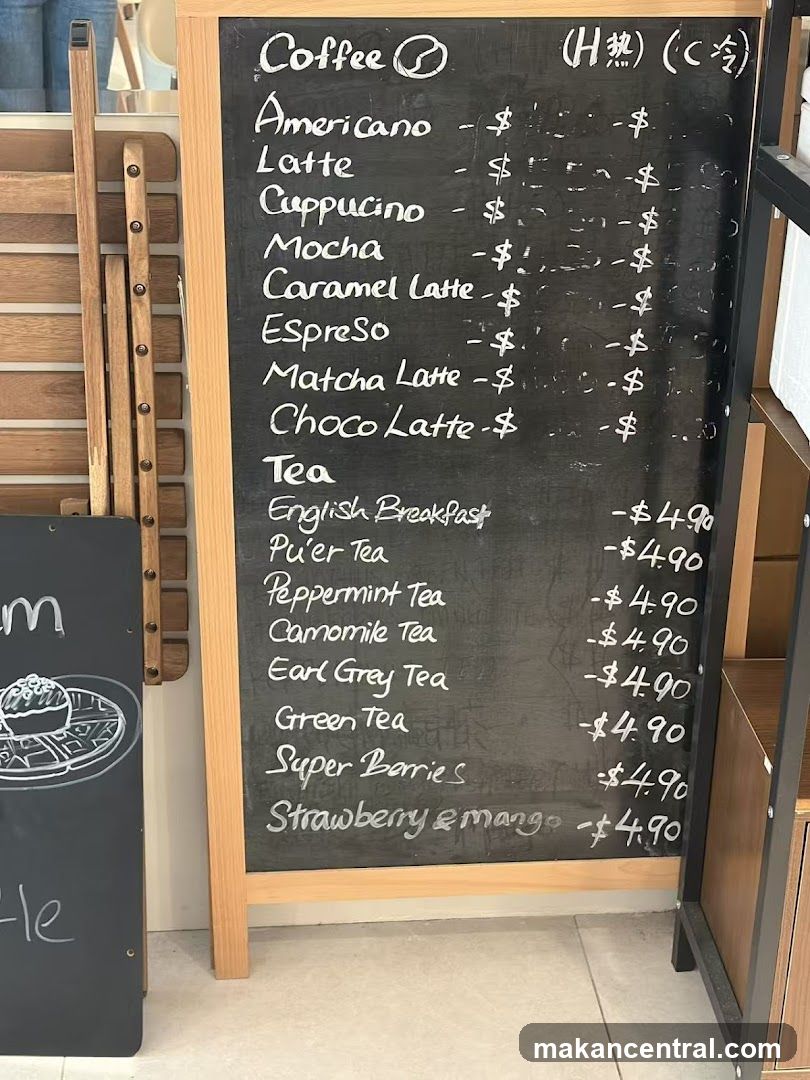 Coffee (H 热) (C 冷)
Americano - $ - $
Latte - $ - $
Cuppucino - $ - $
Mocha - $ - $
Caramel Latte - $ - $
Espreso - $ - $
Matcha Latte - $ - $
Choco Latte - $ - $
Tea
English Breakfast - $4.90
Pu'er Tea - $4.90
Peppermint Tea - $4.90
Camomile Tea - $4.90
Earl Grey Tea - $4.90
Green Tea - $4.90
Super Berries - $4.90
Strawberry & mango - $4.90
makancentral.com